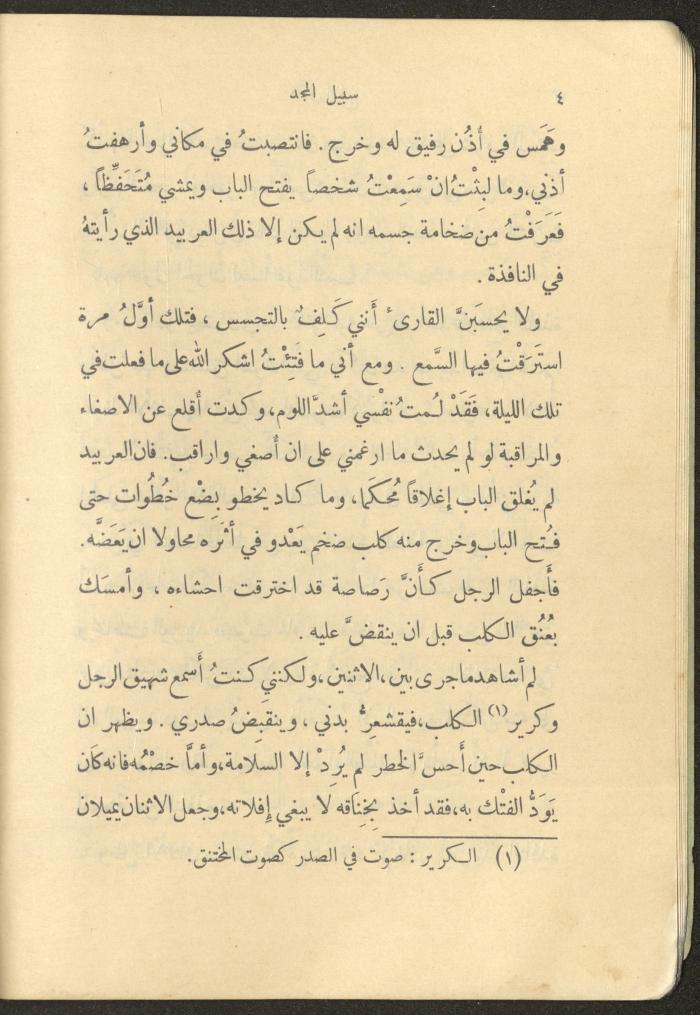 ٤
سبيل المجد
وهَمَس في أذُن رفيق له وخرج . فانتصبتُ في مكاني وأرهفتُ
أذني، وما لبِثْتُ انْ سَمِعْتُ شخصاً يفتح الباب ويمشي مُتَحَفِّظاً ،
فَعَرَفْتُ من ضخامة جسمه انه لم يكن إلا ذلك العربيد الذي رأيتهُ
في النافذة .
ولا يحسبَنَّ القارىء أَنني كَلِفٌ بالتجسس ، فتلك أوَّلُ مرة
استَرَقْتُ فيها السَّمع . ومع أني ما فَتِئْتُ اشكر الله على ما فعلت في
تلك الليلة، فَقَدْ لُمتُ نفْسي أشدَّ اللوم، وكدت أقلع عن الاصغاء
والمراقبة لو لم يحدث ما ارغمني على ان أُصغي واراقب. فان العربيد
لم يُغلق الباب إغلاقاً مُحكَماً، وما كاد يخطو بِضْع خُطُوات حتى
فُتح الباب وخرج منه كلب ضخم يَعْدو في أَثَره محاولا ان يَعَضَّه.
فأَجفل الرجل كأَنَّ رَصاصة قد اخترقت احشاءه ، وأمسَك
بعُنُق الكلب قبل ان ينقضَّ عليه .
لم أشاهد ما جرى بين، الاثنين، ولكنني كنتُ أَسمع شهيق الرجل
وكرير(١) الكلب، فيقشعِرُّ بدني ، وينقَبِضُ صدري . ويظهر ان
الكلب حين أَحسَّ الخطر لم يُرِدْ إلا السلامة، وأمَّا خصْمُه فانه كَان
يَوَدُّ الفتْك به، فقد أخذ بِخِناقه لا يبغي إفلاته، وجعل الاثنان يميلان
(١) الكرير : صوت في الصدر كصوت المختنق.